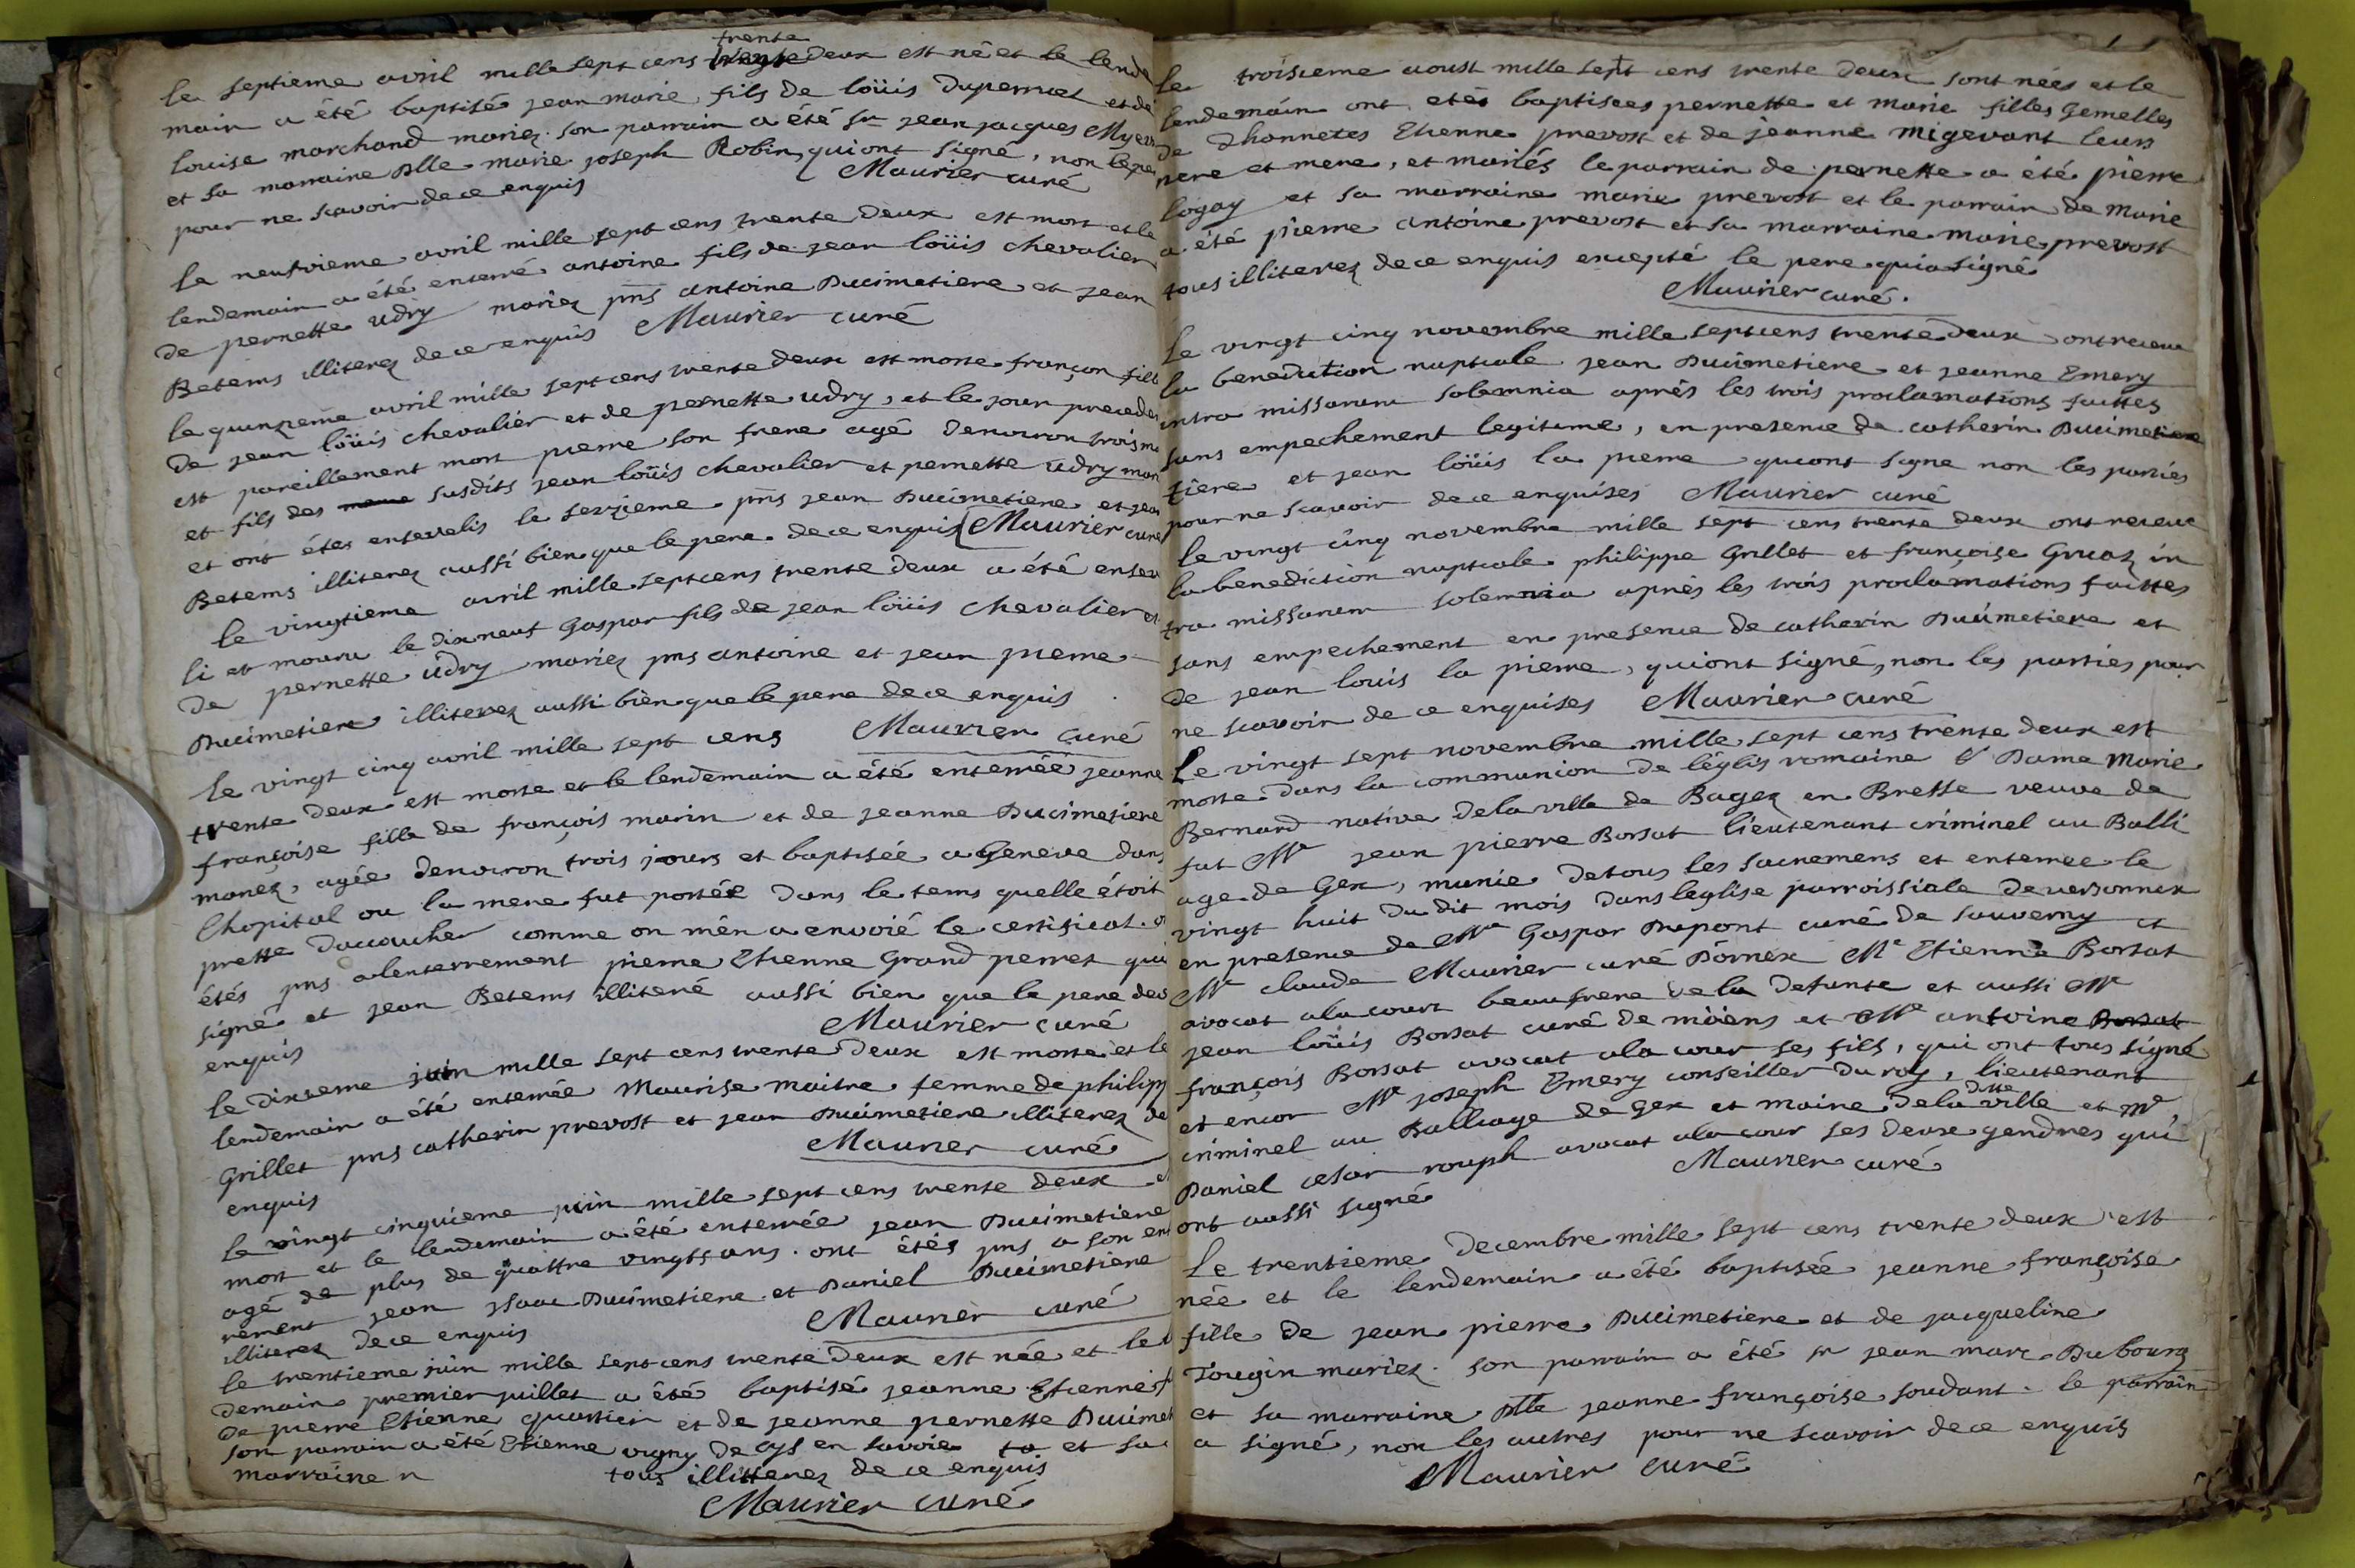 trente
le septieme avril mille sept cens deux est né et le lende
main a été baptisé jean marie, fils de loüis Dupernet et de
louise marchand mariez. son parrain a été sr jean jacques
et sa marraine Dlle marie joseph Robin, qui ont signé, non le pe
pour ne scavoir de ce enquis Maurier curé
le neufvieme avril mille sept cens trente deux est mort et le
lendemain a été enterré antoine fils de jean loüis chevalier
de pernette udry mariez pns antoine Ducimetiere et jean
Betems illiterez de ce enquis Maurier curé
le quinzieme avril mille sept cens trente deux est morte françon fille
de jean loüis chevalier et de pernette udry, et le jour preceden
est pareillement mort pierre son frere agé denviron trois
et fils des susdits jean loüis chevalier et pernette udry mari
et ont étés ensevelis le seizieme pns jean Ducimetiere et jean
Betems illiterez aussi bien que le pere de ce enquis Maurier curé
le vingtieme avril mille sept cens trente deux a été enseve
li et mouru le dixneuf Gaspar fils de jean loüis chevalier et
de pernette udry mariez pns antoine et jean pierre
Ducimetiere illiterez aussi bien que le pere de ce enquis
Maurier curé
le vingt cinq avril mille sept cens
trente deux est morte et le lendemain a été enterrée jeanne
françoise fille de françois marin et de jeanne Ducimetiere
mariez, agée denviron trois jours et baptisée a Geneve dans
lhopital ou la mere fut portée dans le tems quelle étoit
prette daccoucher comme on mên a envoié le certificat. o
étés pns alenterrement pierre Etienne Grand perret qui
signé et jean Betems illiteré aussi bien que le pere de ce
enquis Maurier curé
le dixieme juin mille sept cens trente deux est morte et le
lendemain a été enterrée Maurise maitre femme de philipp
Grillet pns catherin prevost et jean Ducimetiere illiterez de
enquis Maurier curé
le vingt cinquieme juin mille sept cens trente deux e
mort et le lendemain a été enterrée jean Ducimetiere
agé de plus de quattre vingts ans. ont étés pns a son en
rement jean jsaac Ducimetiere et Daniel Ducimetiere
illiterez de ce enquis Maurier curé
le trentieme juin mille sept cens trente deux est née et le
demain premier juillet a été baptisé jeanne Etienne f
de pierre Etienne quartier et de jeanne pernette Ducimet
son parrain a été Etienne vigny de Cys en savoie et sa
marraine n tous illitterez de ce enquis
Maurier curé
le troisieme aoust mille sept cens trente deux sont nées et le
lendemain ont etés baptisees pernette et marie filles Gemelles
de Dhonnetes Etienne prevost et de jeanne migevant leurs
pere et mere, et mariés le parrain de pernette a été pierre
logay et sa marraine marie prevost et le parrain de marie
a été pierre antoine prevost et sa marraine marie prevost
tous illiterez de ce enquis excepté le pere qui a signé
Maurier curé.
Le vingt cinq novembre mille sept cens trente deux ont receue
la benediction nuptiale jean Ducimetiere et jeanne Emery
intra missarum solemnia aprés les trois proclamations faittes
sans empechement legitime, en presence de catherin Ducimetiere
tiere et jean loüis la pierre qui ont signé non les parties
pour ne scavoir de ce enquises Maurier curé
le vingt cinq novembre mille sept cens trente deux ont receue
la benediction nuptiale philippe Grillet et françoise Gruaz in
tra missarum solemnia aprés les trois proclamations faittes
sans empechement en presence de catherin Ducimetiere et
de jean louis la pierre, qui ont signé, non les parties pour
ne scavoir de ce enquises Maurier curé
Le vingt sept novembre mille sept cens trente deux est
morte dans la communion de léglis romaine Dame Marie
Bernard native de la ville de Bagez en Bresse veuve de
fut Mre jean pierre Borsat lieutenant criminel au Balli
age de Gex, munie de tous les sacremens et enterree le
vingt huit du dit mois dans leglise parroissiale de versonnex
en presence de Mre Gaspar Dupont curé de sauverny et
Mre claude Maurier curé Dornex Mr Etienne Borsat
avocat a la cour beaufrere de la defunte et aussi Mre
jean loüis Borsat curé de möens et Mre antoine Borsat
françois Borsat avocat a la cour ses fils, qui ont tous signé
et encor Mre joseph Emery conseiller du roy, lieutenant
criminel au Balliage de Gex et maire de la ditte ville et Mre
Daniel cesar rouph avocat a la cour ses deux gendres qui
ont aussi signé Maurier curé
Le trentieme Decembre mille sept cens trente deux est
née et le lendemain a été baptisée jeanne françoise
fille de jean pierre Ducimetiere et de jacqueline
Tougin mariez. son parrain a été sr jean marc Dubourg
et sa marraine Dlle jeanne françoise soudant. le parrain
a signé, non les autres pour ne scavoir de ce enquis
Maurier curé